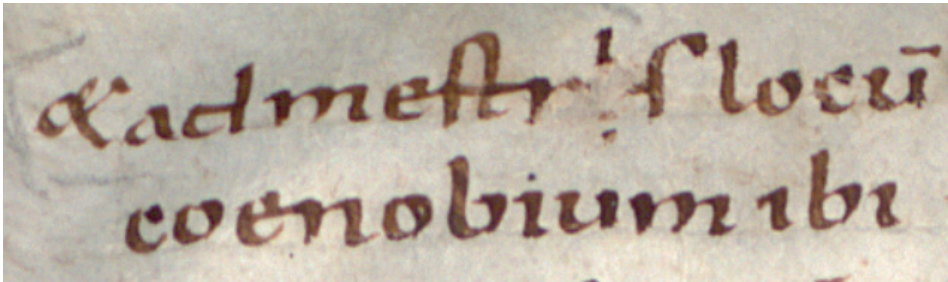 & ad mestriſ locū
coenobium ibi